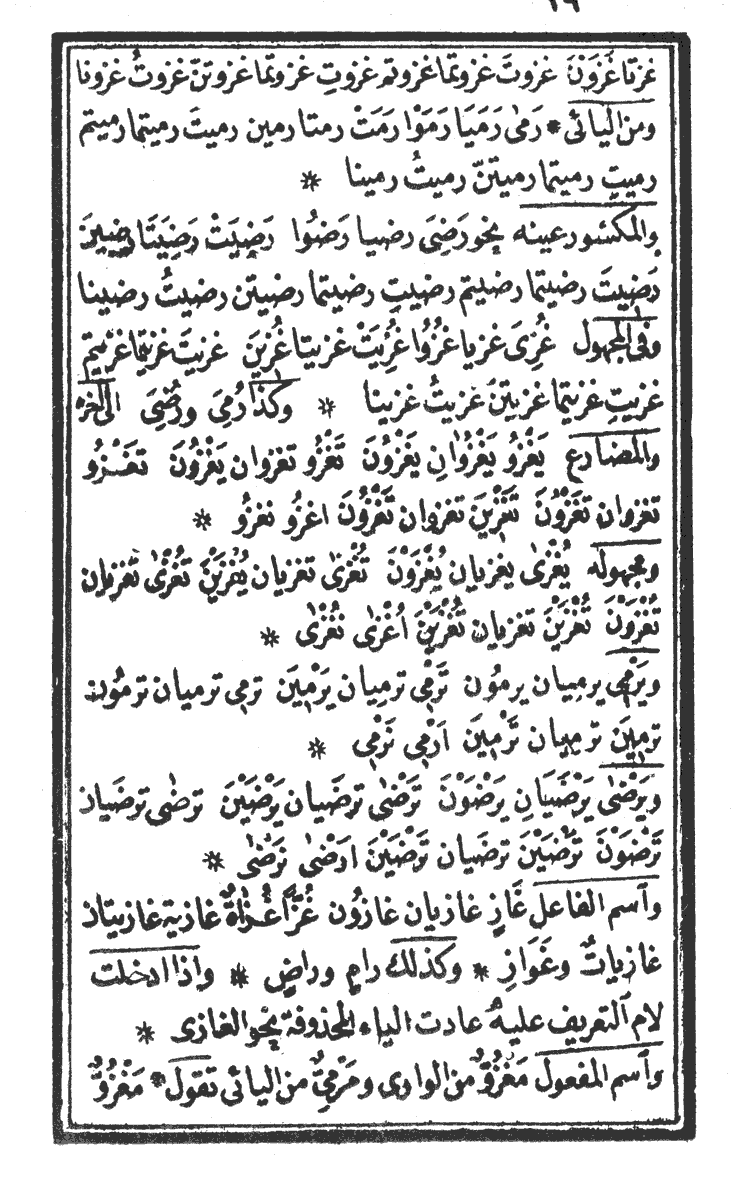 ١٦
غزتا غَزَوْنَ غزوتَ غزوتما غزوتم غزوتِ غزوتما غزوتنّ غزوتُ غزونا
ومن اليائى * رَمىٰ رَمَيَا رَمَوْا رَمَتْ رمتا رمين رميتَ رميتما رميتم
رميتِ رميتما رميتنّ رميتُ رمينا *
والمكسور عينه نحو رَضِىَ رضيا رَضُوا رَضِيَتْ رَضِيَتَا رضينَ
رَضِيتَ رضيتما رضيتم رضيتِ رضيتما رضيتن رضيتُ رضينا
وفى المجهول غُزِىَ غزيا غُزُوا غُزِيَتْ غزيتا غُزِينَ غزيتَ غزيتما غزيتم
غزيتِ غزيتما غزيتنّ غزيتُ غزينا * وكذا رُمِىَ ورُضِىَ الى آخره
والمضارع يَغْزُو يَغْزُوَانِ يَغْزُونَ تَغْزُو تغزوان يَغْزُونَ تغزو
تغزوان تَغْزُونَ تَغْزِينَ تغزوان تَغْزُونَ اغزُو نغزُو *
ومجهوله يُغْزٰى يغزيان يُغْزَوْنَ تُغْزىٰ تغزيان يُغْزَيْنَ تُغْزىٰ تغزيان
تُغْزَوْنَ تُغْزَيْنَ تغزيان تُغْزَيْنَ اُغْزىٰ نُغْزىٰ *
ويَرْمِى يرميان يرمُون تَرْمِى ترمِيان يَرْمِينَ ترمى ترميان ترمُون
ترمِينَ ترميان تَرْمِينَ اَرْمِى نَرْمِى *
ويَرْضىٰ يَرْضَيَانِ يَرْضَوْنَ تَرْضىٰ ترضَيان يَرْضَيْنَ ترضٰى ترضَيان
تَرْضَوْنَ تَرْضَيْنَ ترضَيان تَرْضَيْنَ ارَضىٰ نَرْضىٰ *
وآسم الفاعل غَازٍ غازيان غازُون غُزًّا غُزَاةٌ غازية غازيتان
غازياتٌ وغَوَازٍ * وكذلك رامٍ وراضٍ * واذا ادخلت
لام آلتعريف عليه عادت الياء المحذوفة نحو الغازى *
وآسم المفعول مَغْزُوٌّ من الواوى ومَرْمِىٌّ من اليائى تقول * مَغْزُوٌّ